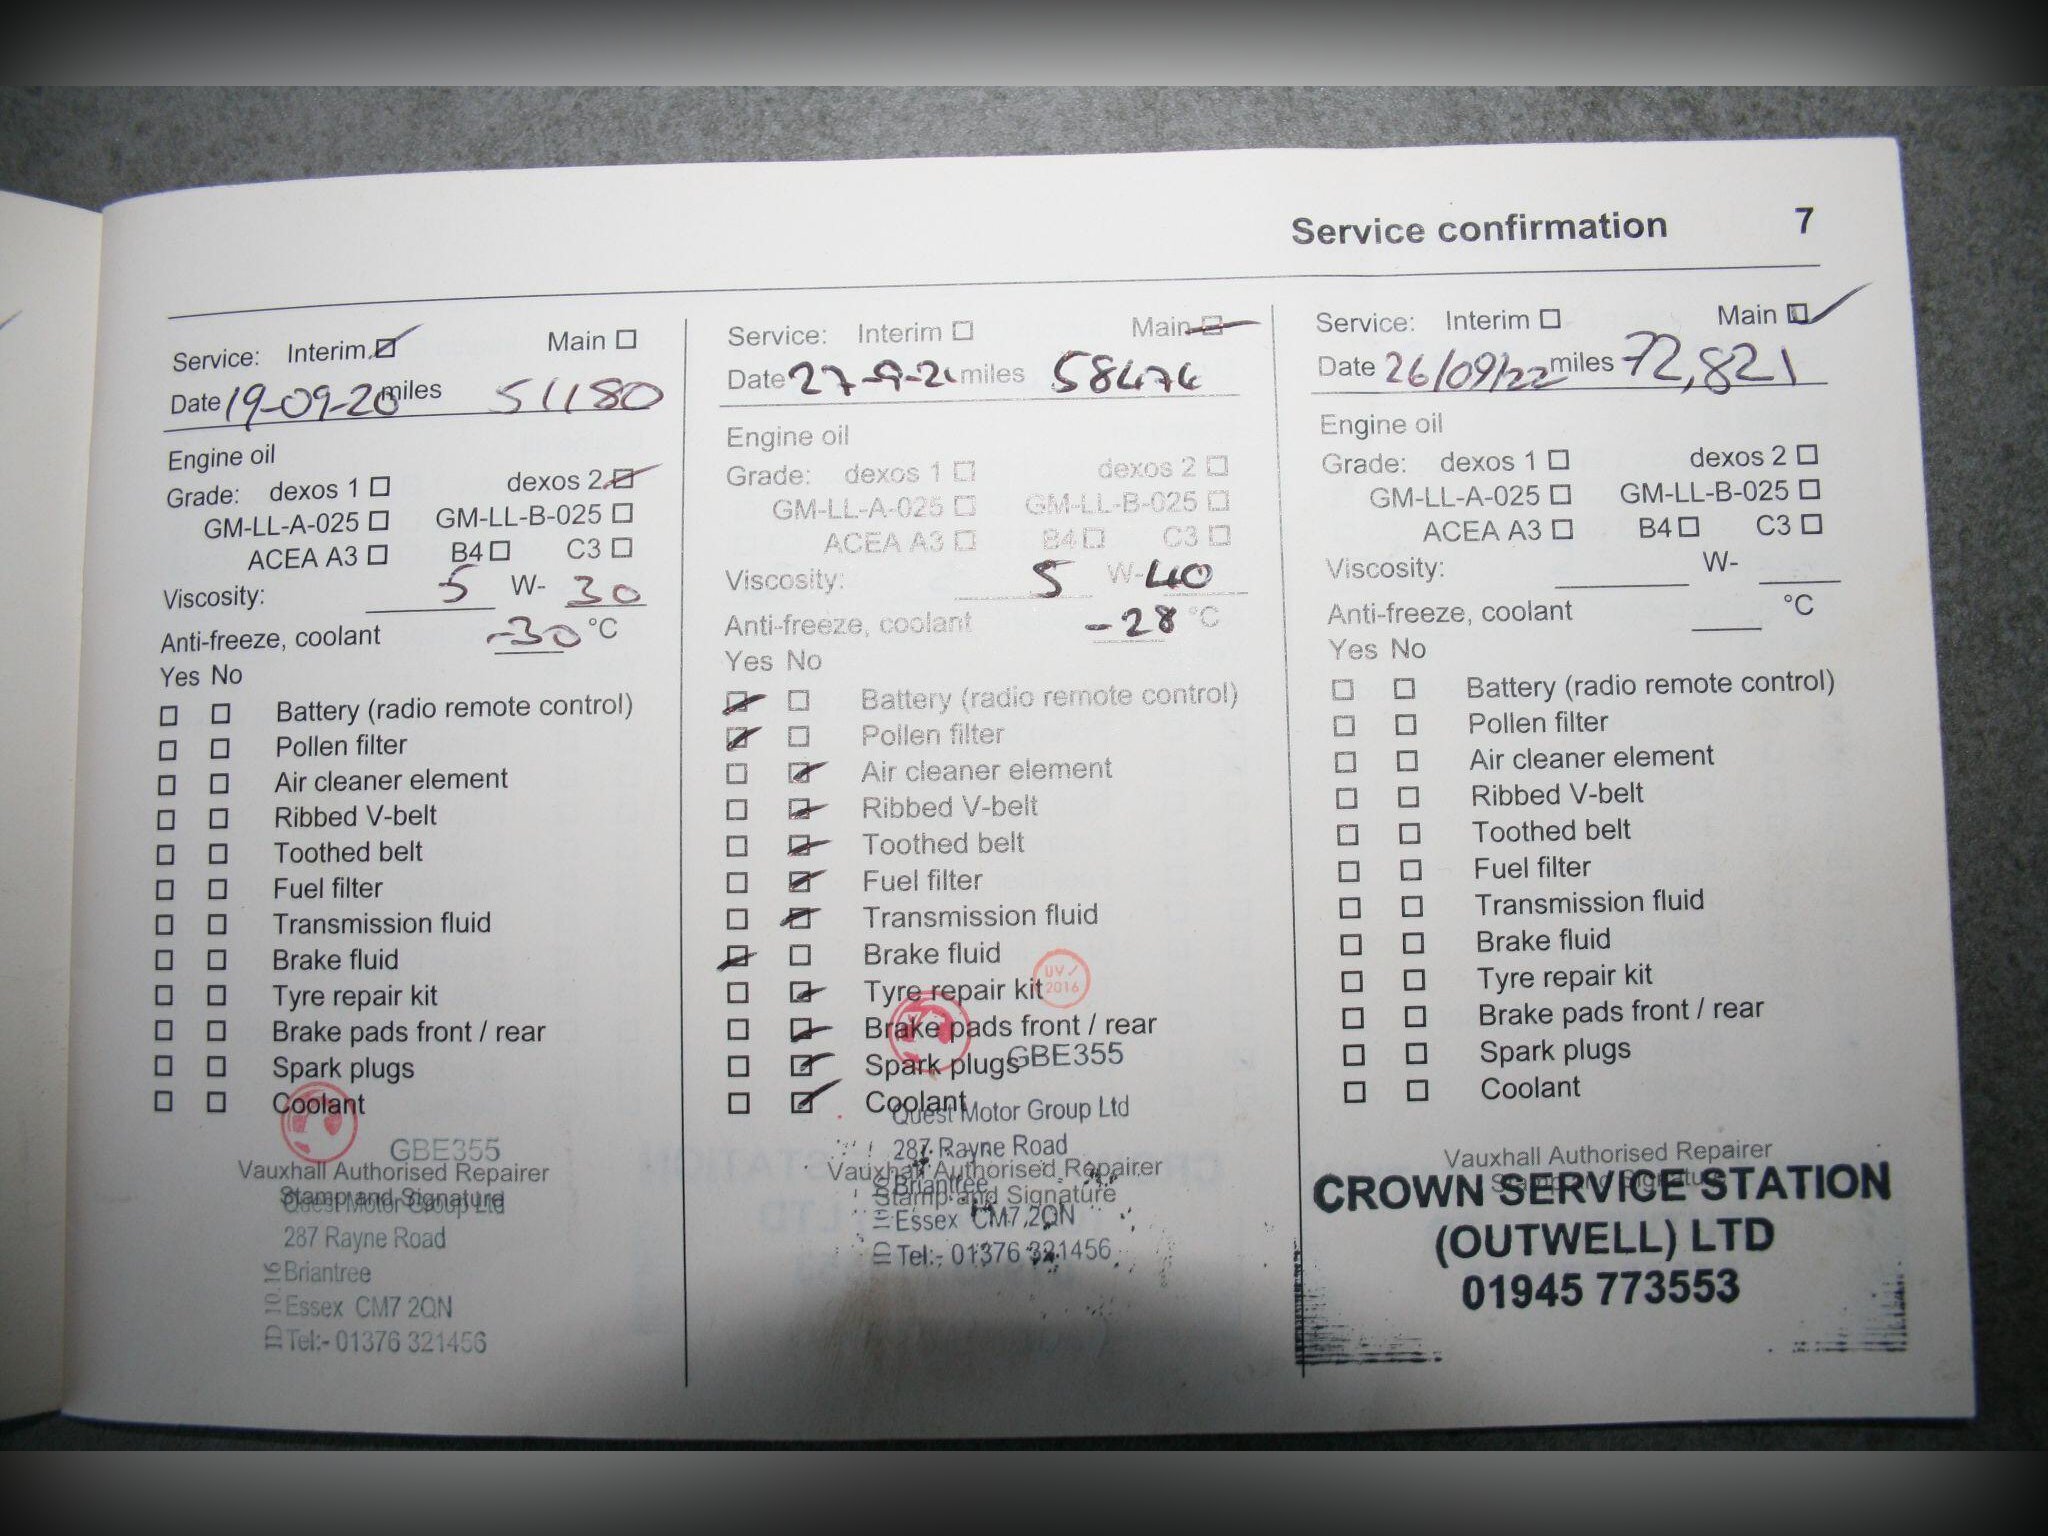 Service confirmation 7
Service: Interim Main
Date 19-09-20 miles 51180
Engine oil
Grade: dexos 1 dexos 2
GM-LL-A-025 GM-LL-B-025
ACEA A3 B4 C3
Viscosity: 5 W- 30
Anti-freeze, coolant -30 °C
Yes No
Battery (radio remote control)
Pollen filter
Air cleaner element
Ribbed V-belt
Toothed belt
Fuel filter
Transmission fluid
Brake fluid
Tyre repair kit
Brake pads front / rear
Spark plugs
Coolant
GBE355
Vauxhall Authorised Repairer
Stamp and Signature
Quest Motor Group Ltd
287 Rayne Road
Briantree
Essex CM7 2QN
Tel:- 01376 321456
ID 10.16
Service: Interim Main
Date 27-9-21 miles 58474
Engine oil
Grade: dexos 1 dexos 2
GM-LL-A-025 GM-LL-B-025
ACEA A3 B4 C3
Viscosity: 5 W- 40
Anti-freeze, coolant -28 °C
Yes No
Battery (radio remote control)
Pollen filter
Air cleaner element
Ribbed V-belt
Toothed belt
Fuel filter
Transmission fluid
Brake fluid
Tyre repair kit
UV
2016
Brake pads front / rear
Spark plugs
GBE355
Coolant
Quest Motor Group Ltd
287 Rayne Road
Vauxhall Authorised Repairer
Briantree
Stamp and Signature
Essex CM7 2QN
Tel:- 01376 321456
Service: Interim Main
Date 26/09/22 miles 72,821
Engine oil
Grade: dexos 1 dexos 2
GM-LL-A-025 GM-LL-B-025
ACEA A3 B4 C3
Viscosity: W-
Anti-freeze, coolant °C
Yes No
Battery (radio remote control)
Pollen filter
Air cleaner element
Ribbed V-belt
Toothed belt
Fuel filter
Transmission fluid
Brake fluid
Tyre repair kit
Brake pads front / rear
Spark plugs
Coolant
Vauxhall Authorised Repairer
Stamp and Signature
CROWN SERVICE STATION
(OUTWELL) LTD
01945 773553